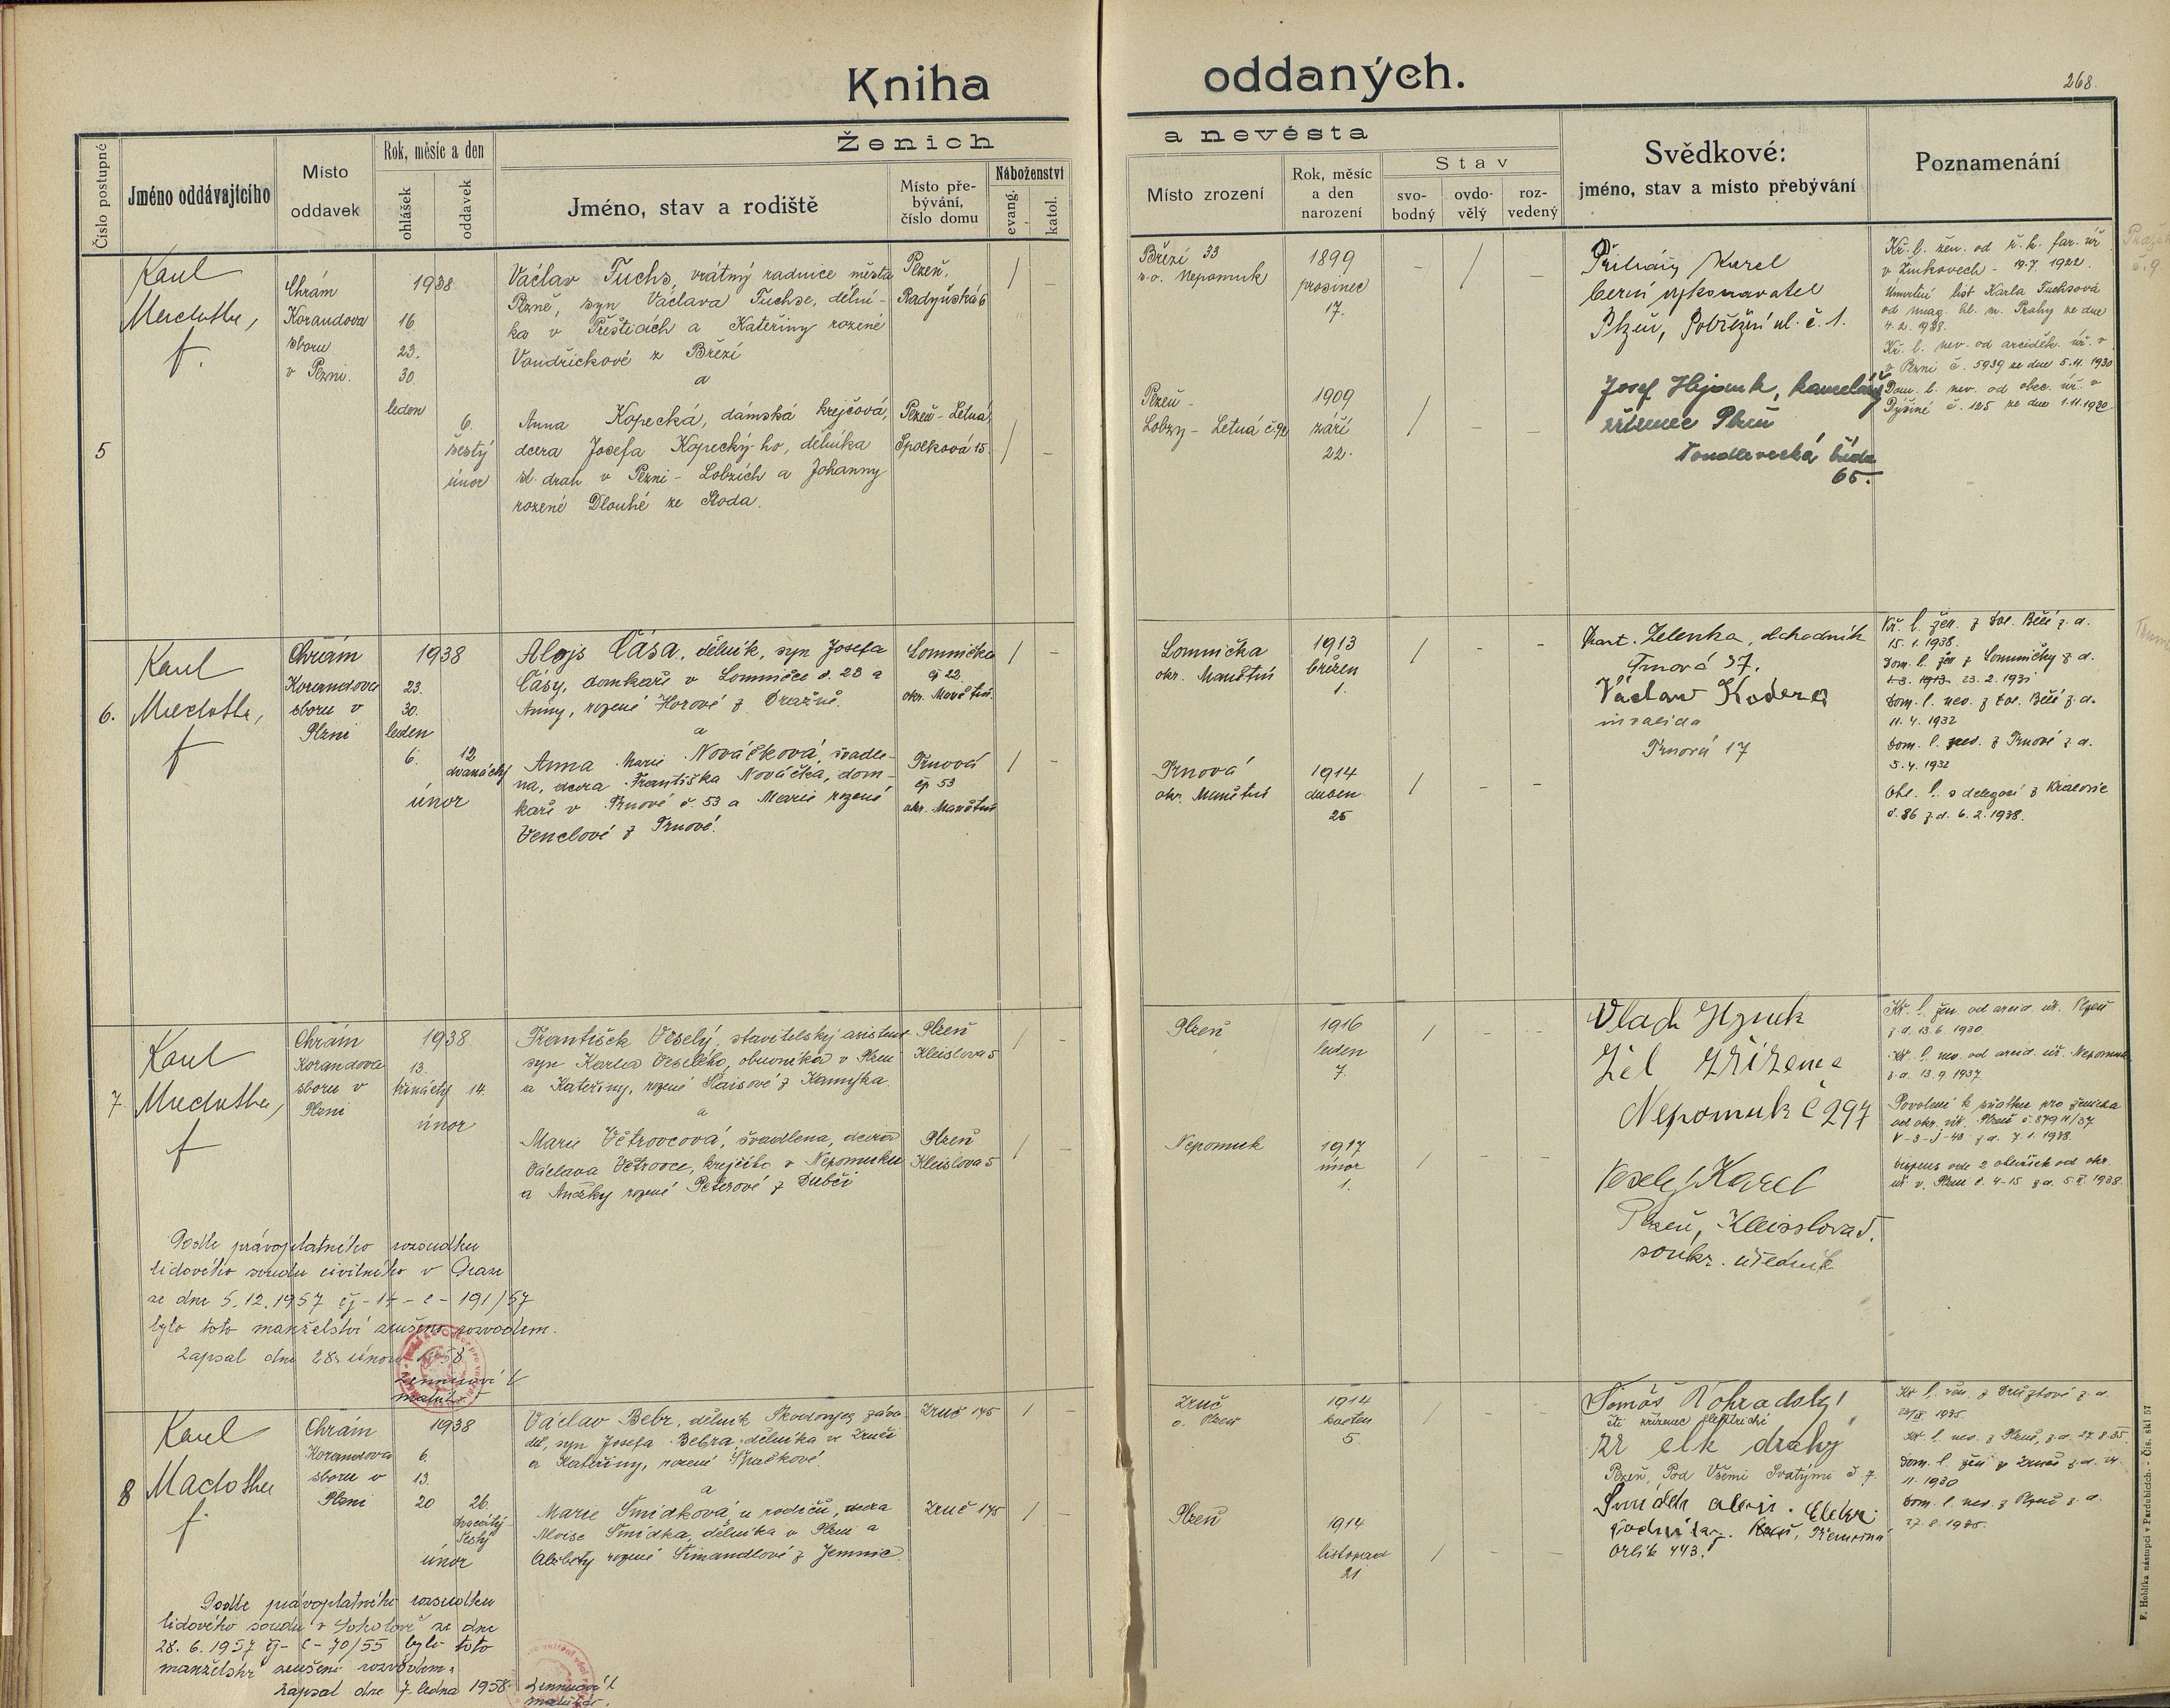 Kniha oddaných.
268.
Číslo postupné
Jméno oddávajícího
Místo oddavek
Rok, měsíc a den
ohlášek
oddavek
Ženich
a nevěsta
Jméno, stav a rodiště
Místo pře-
bývání,
číslo domu
Náboženství
evang.
katol.
Místo zrození
Rok, měsíc
a den
narození
Stav
svo-
bodný
ovdo-
vělý
roz-
vedený
Svědkové:
jméno, stav a místo přebývání
Poznamenání
5
Karel
f.
Chrám
Korandova
sboru
v Plzni.
1938
16.
23.
30.
leden
6.
šestý
únor
Václav Fuchs, vrátný radnice města
Plzně, syn Václava Fuchse, dělní-
ka v Přešticích a Kateřiny rozené
Vondřičkové z Březí
a
Anna Kopecká, dámská krejčová,
dcera Josefa Kopecký-ho, dělníka
st. drah v Plzni - Lobzích a Johanny
rozené Dlouhé ze Stoda.
Plzeň,
Radyňská 6
Plzeň - Letná,
Spolková 15.
Březí 33
s.o. Nepomuk
1899
prosinec
17.
Plzeň -
Lobzy - Letná č. 92
1909
září
22.
Karel
berní vykonavatel
Plzeň, Pobřežní ul. č. 1.
Josef
zřízenec Plzeň
65.
Kř. l. žen. od ř. k. far. úř
v Žinkovech - 19.7. 1922.
Úmrtní list Karla Fuchsová
od mag. hl. m. Prahy ze dne
4. 2. 1938.
Kř. l. nev. od arciděk. úř. v
Plzni č. 5939 ze dne 5.11. 1930
Dom. l. nev. od obec. úř. v
Dýšině č. 125 ze dne 1.11.1930
6.
Karel
f
Chrám
Korandova
sboru v
Plzni
1938
23.
30.
leden
6.
12
dvanáctý
únor
Alojs Čása, dělník, syn Josefa
Čásy, domkaře v Lomničce č. 23 a
Anny, rozené Horové z Dražně.
a
Anna Marie Nováčková, švadle-
na, dcera Františka Nováčka, dom-
kaře v Trnové č 53 a Marie rozené
Venclové z Trnové.
Lomnička
čp 22.
okr. Manětín.
Trnová
čp 53
okr. Manětín
Lomnička
okr. Manětín
1913
březen
1.
Trnová
okr. Manětín
1914
duben
25
Zelenka, obchodník
Trnová 37.
Václav Kodera
invalida
Trnová 17
Kř. l. žen. z Dol. Bělé z d.
15. 1. 1938.
Dom. l. žen z Lomničky z d.
23. 2. 1931
Dom. l. nev. z Dol. Bělé z d.
11. 4. 1932
z Trnové z d.
5. 4. 1932
Ohl. l. s delegací z Kralovic
č. 86 z d. 6. 2. 1938.
7.
Karel
f
Chrám
Korandova
sboru v
Plzni
1938
13.
třináctý 14.
únor
František Veselý, stavitelský asistent
syn Karla Veselého, obuvníka v Plzni
a Kateřiny, rozené Slaisové z Kamýka.
a
Marie Větrovcová, švadlena, dcera
Václava Větrovce, krejčího v Nepomuku
a Anežky rozené Peterové z Dubči
Plzeň
Kleislova 5
Plzeň
Kleislova 5
Plzeň
1916
leden
7.
Nepomuk
1917
únor
1.
Žel zřízenec
Nepomuk č 297
Veselý Karel
Plzeň, Kleisslova 5.
soukr. úředník
Kř. l. žen. od arcid. úř. Plzeň
z d. 13. 6. 1930.
Kř. l. nev. od arcid. úř. Nepomuk
z d. 13. 9. 1937.
Povolení k sňatku pro ženicha
od okr. úř. Plzeň č.
z d. 7. 1. 1938.
Dispens ode 2 ohlášek od okr.
úř. v. Plzni č. 4-15 z d. 5.II. 1938.
Podle právoplatného rozsudku
lidového soudu civilního v Praze
ze dne 5.12.1957 čj - 14 - c - 191/57
bylo toto manželství zrušeno rozvodem.
Zapsal dne 28. února 1958
8
Karel
f.
Chrám
Korandova
sboru v
Plzni
1938
6.
13.
20
26.
dvacátý
šestý
únor
Václav Bebr, dělník Škodových závo-
dů, syn Josefa Bebra, dělníka ve Zruči
a Kateřiny, rozené Špačkové.
a
Marie Šmídková, u rodičů, dcera
Aloise Šmídka, dělníka v Plzni a
Alžběty rozené Šimandlové z Jemnic.
Zruč 145
Zruč 145
Zruč
o. Plzeň
1914
květen
5.
Plzeň
1914
listopad
21
Tomáš Nohradolý
zř elk dráhy
Plzeň, Pod Všemi Svatými č 7.
Šmídek
Orlík 443.
Kř. l. žen. z Druztové z d.
1935.
Kř. l. nev. z Plzně, z d. 27.8.35.
Dom. l. žen ze Zruče z d.
11. 1930
Dom. l. nev. z Plzně z d.
27. 8. 1935.
Podle právoplatného rozsudku
lidového soudu v Sokolově ze dne
28. 6. 1957 čj - c - 70/55 bylo toto
manželství zrušeno rozvodem.
Zapsal dne 7. ledna 1958.
F. Hoblíka nástupci v Pardubicích. - Čís. skl 57